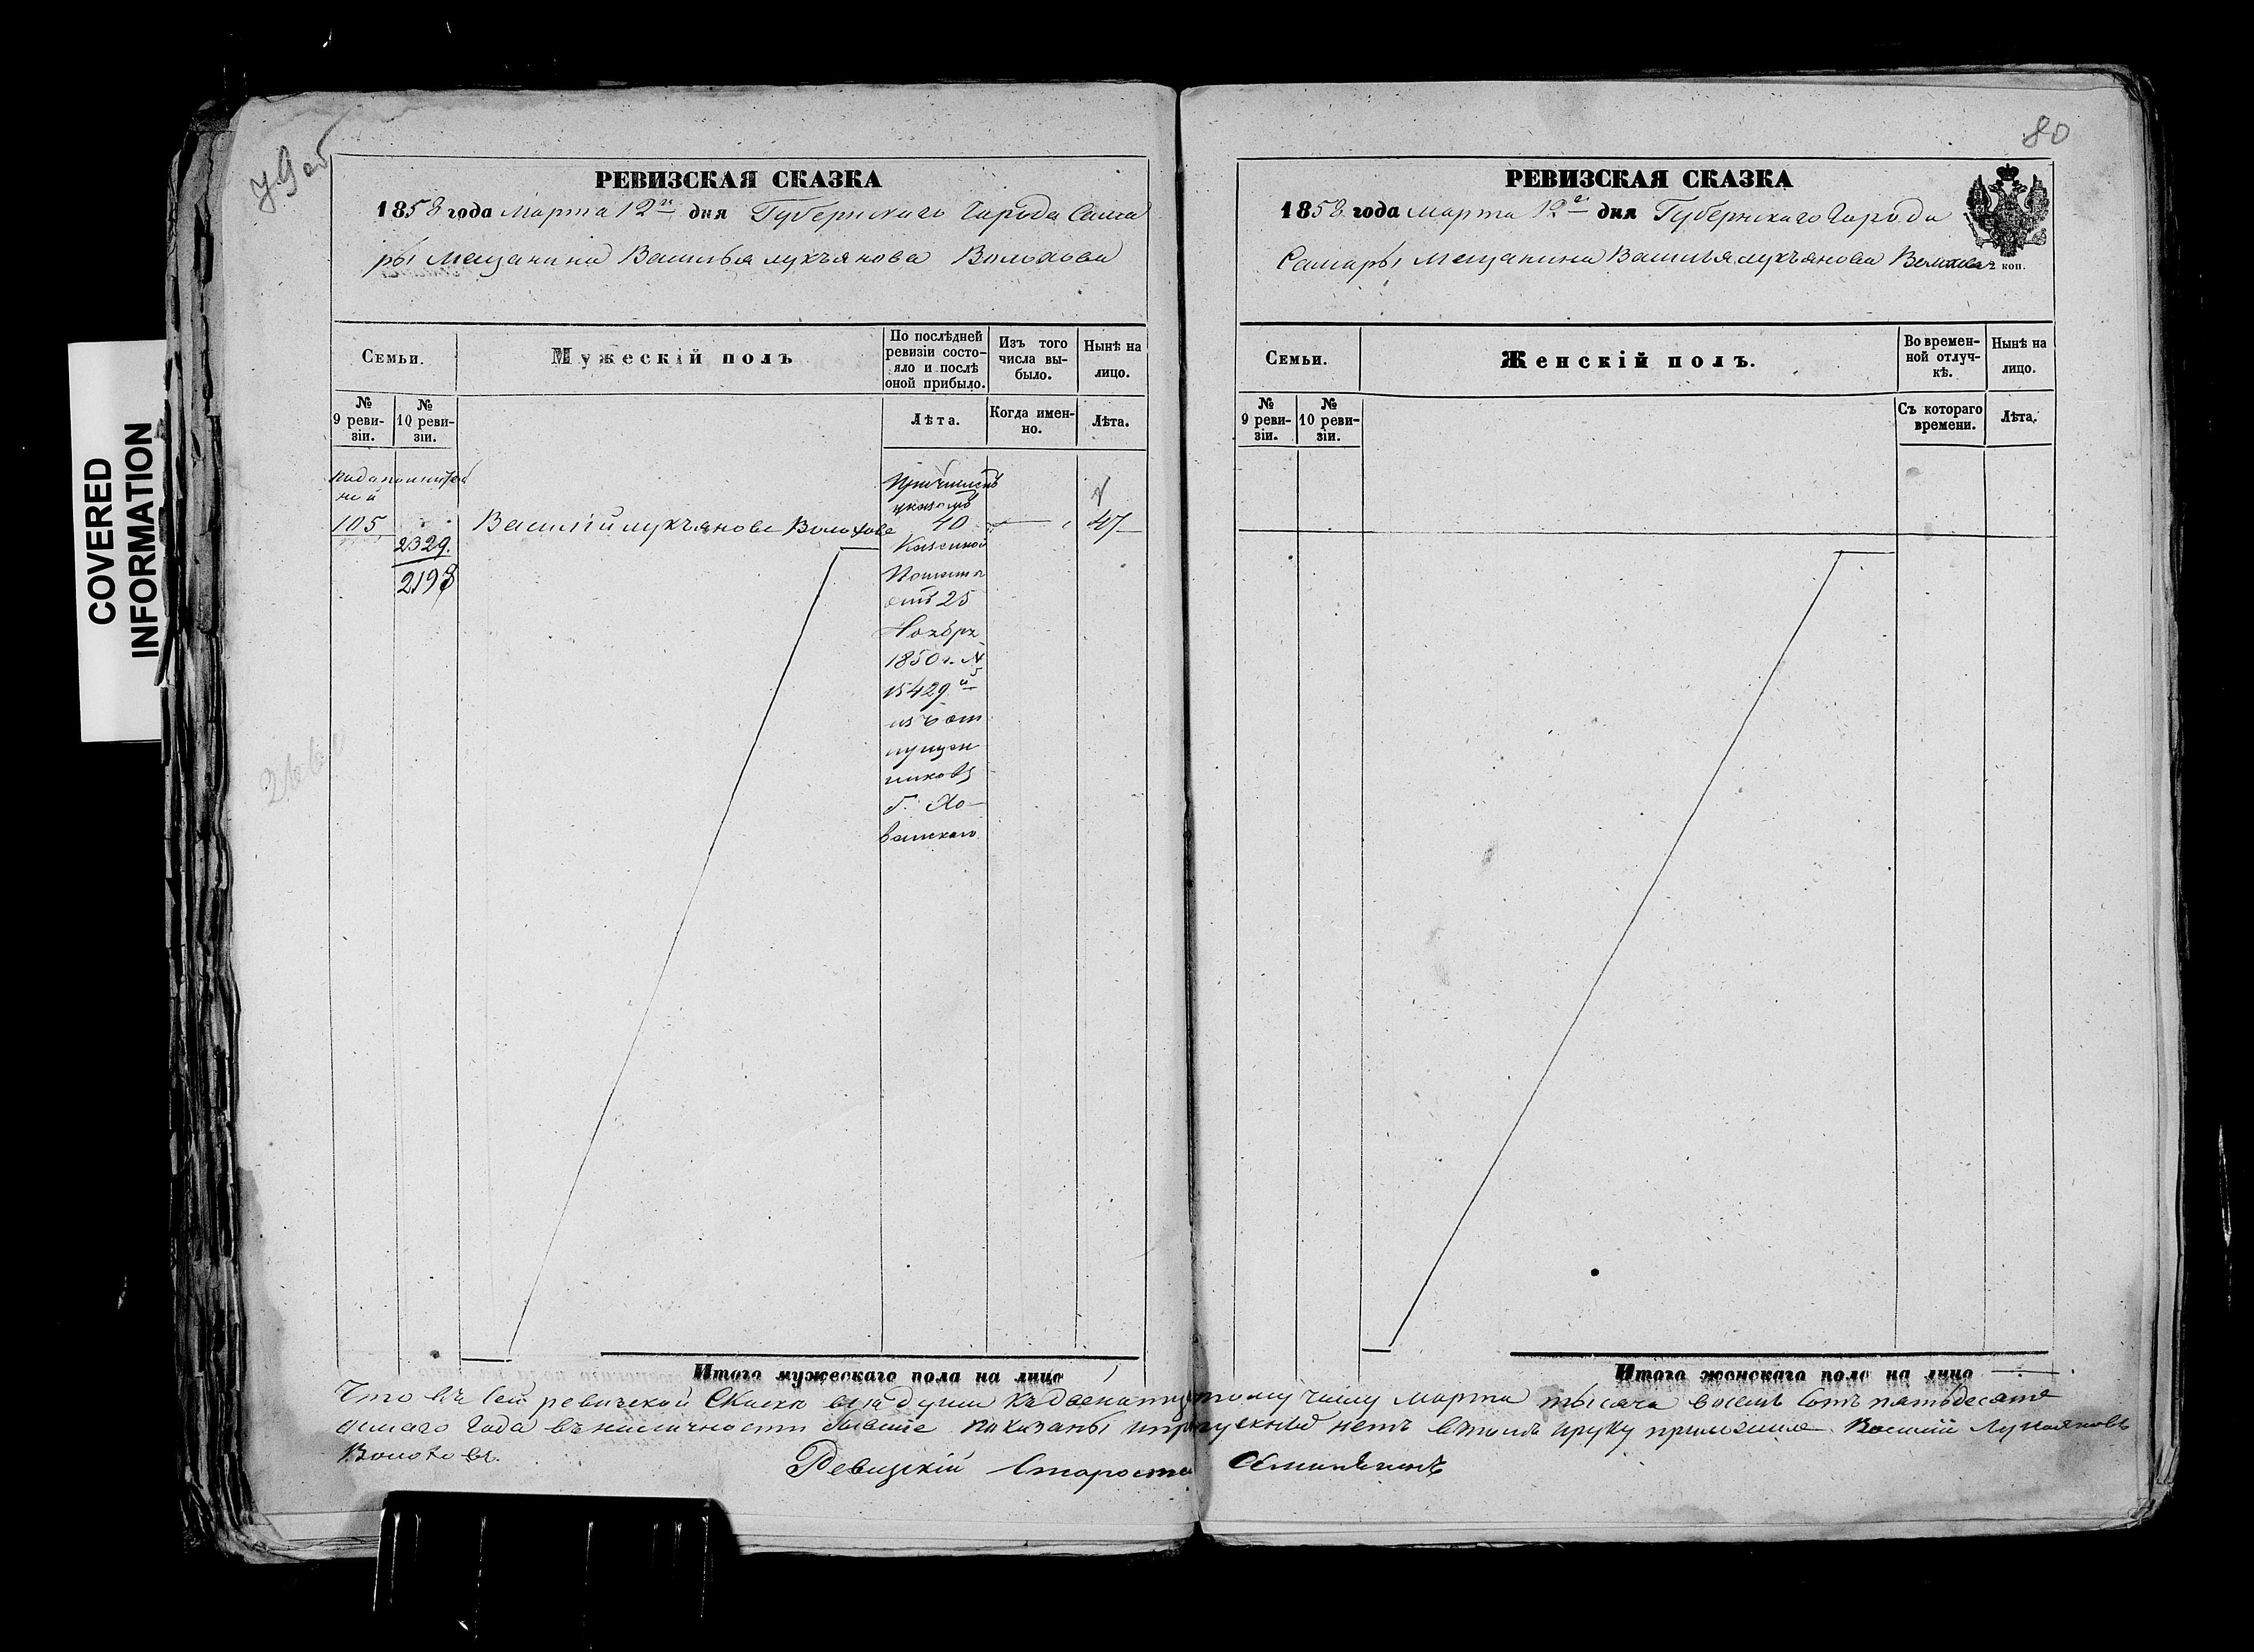 COVERED
INFORMATION
РЕВИЗСКАЯ СКАЗКА
1858 года Марта 12го дня Губернскаго Города Сама
ры Мещанина Василья лукъянова Волохова
Семьи.
Мужескій полъ
По послѣдней
ревизіи состо-
яло и послѣ
оной прибыло.
Изъ того
числа вы-
было.
Нынѣ на
лицо.
№
9 реви-
зіи.
№
10 реви-
зіи.
Лѣта.
Когда имен-
но.
Лѣта.
105
2329.
2198
Василій лукъяновъ Волоховъ
Причисленъ
указомъ
40
Казенной
Палаты
отъ 25
Ноября
1850 г. №
15429й
изъ от
пущен
никовъ
г. Хо-
ванскаго
47
Итого мужескаго пола на лицо 1
80
РЕВИЗСКАЯ СКАЗКА
1858 года Марта 12го дня Губернскаго Города
Самары Мещанина Василья лукъянова Волохова
2 коп.
Семьи.
Женскій полъ.
Во времен-
ной отлуч-
кѣ.
Нынѣ на
лицо.
№
9 реви-
зіи.
№
10 реви-
зіи.
Съ котораго
времени.
Лѣта.
Итого женскаго пола на лицо
Что въ сей ревизской Скаске все души къ двенатцатому числу марта тысяча восемь сотъ пятьдесятъ
осмаго года въ наличности бывшие показаны и пропускныхъ нетъ втомъ и руку приложилъ Василій Лукьяновъ
Волоховъ.
Ревизскій Староста